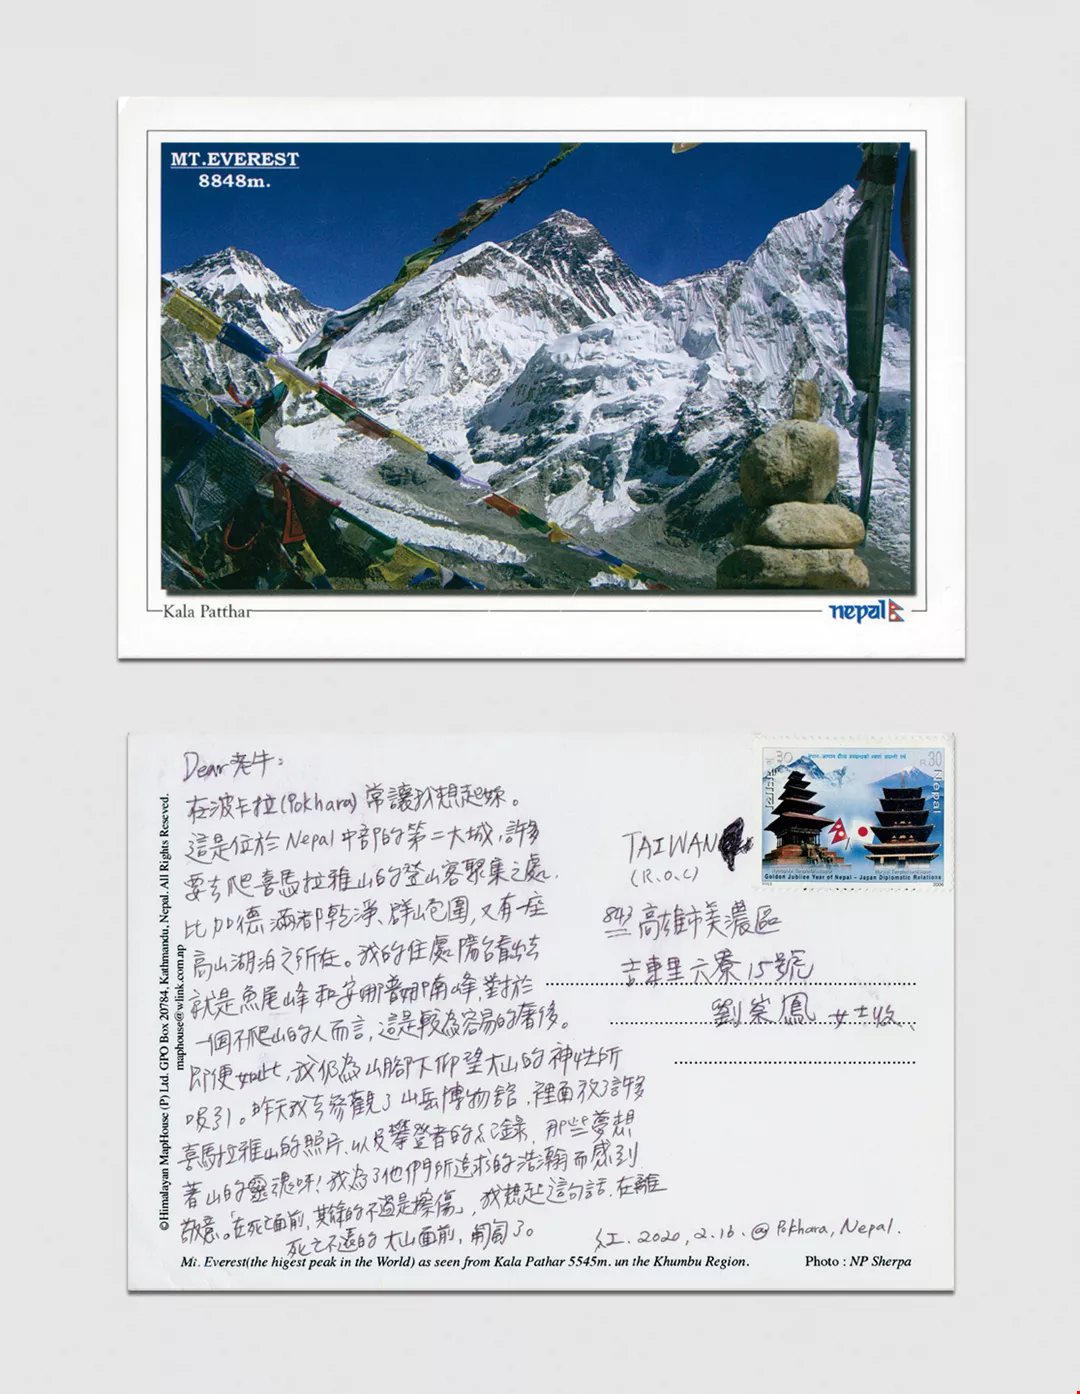 MT.EVEREST
8848m.
Kala Patthar
nepal
Dear老牛:
在波卡拉(Pokhara)常讓我想起妳。
這是位於Nepal中部的第二大城,許多
要去爬喜馬拉雅山的登山客聚集之處,
比加德滿都乾淨、群山包圍,又有一座
高山湖泊之所在。我的住處陽台看出去
就是魚尾峰和安娜普娜南峰,對於
一個不爬山的人而言,這是較為容易的奢侈。
即便如此,我仍為山腳下仰望大山的神性所
吸引。昨天我去參觀了山岳博物館,裡面放了許多
喜馬拉雅山的照片,以及攀登者的紀錄,那些夢想
著山的靈魂呀!我為了他們所追求的浩瀚而感到
敬意。「在死亡面前,其餘的不過是擦傷」,我想起這句話,在離
死亡不遠的大山面前,匍匐了。
紅. 2020, 2.16. @ Pokhara, Nepal.
TAIWAN
(R.O.C)
843 高雄市美濃區
吉東里六寮15號
劉崇鳳 女士收
30
Nepal
Golden Jubilee Year of Nepal - Japan Diplomatic Relations
2006
©Himalayan MapHouse (P) Ltd. GPO Box 20784, Kathmandu, Nepal. All Rights Reseved.
maphouse@wlink.com.np
Mt. Everest(the higest peak in the World) as seen from Kala Pathar 5545m. un the Khumbu Region.
Photo : NP Sherpa